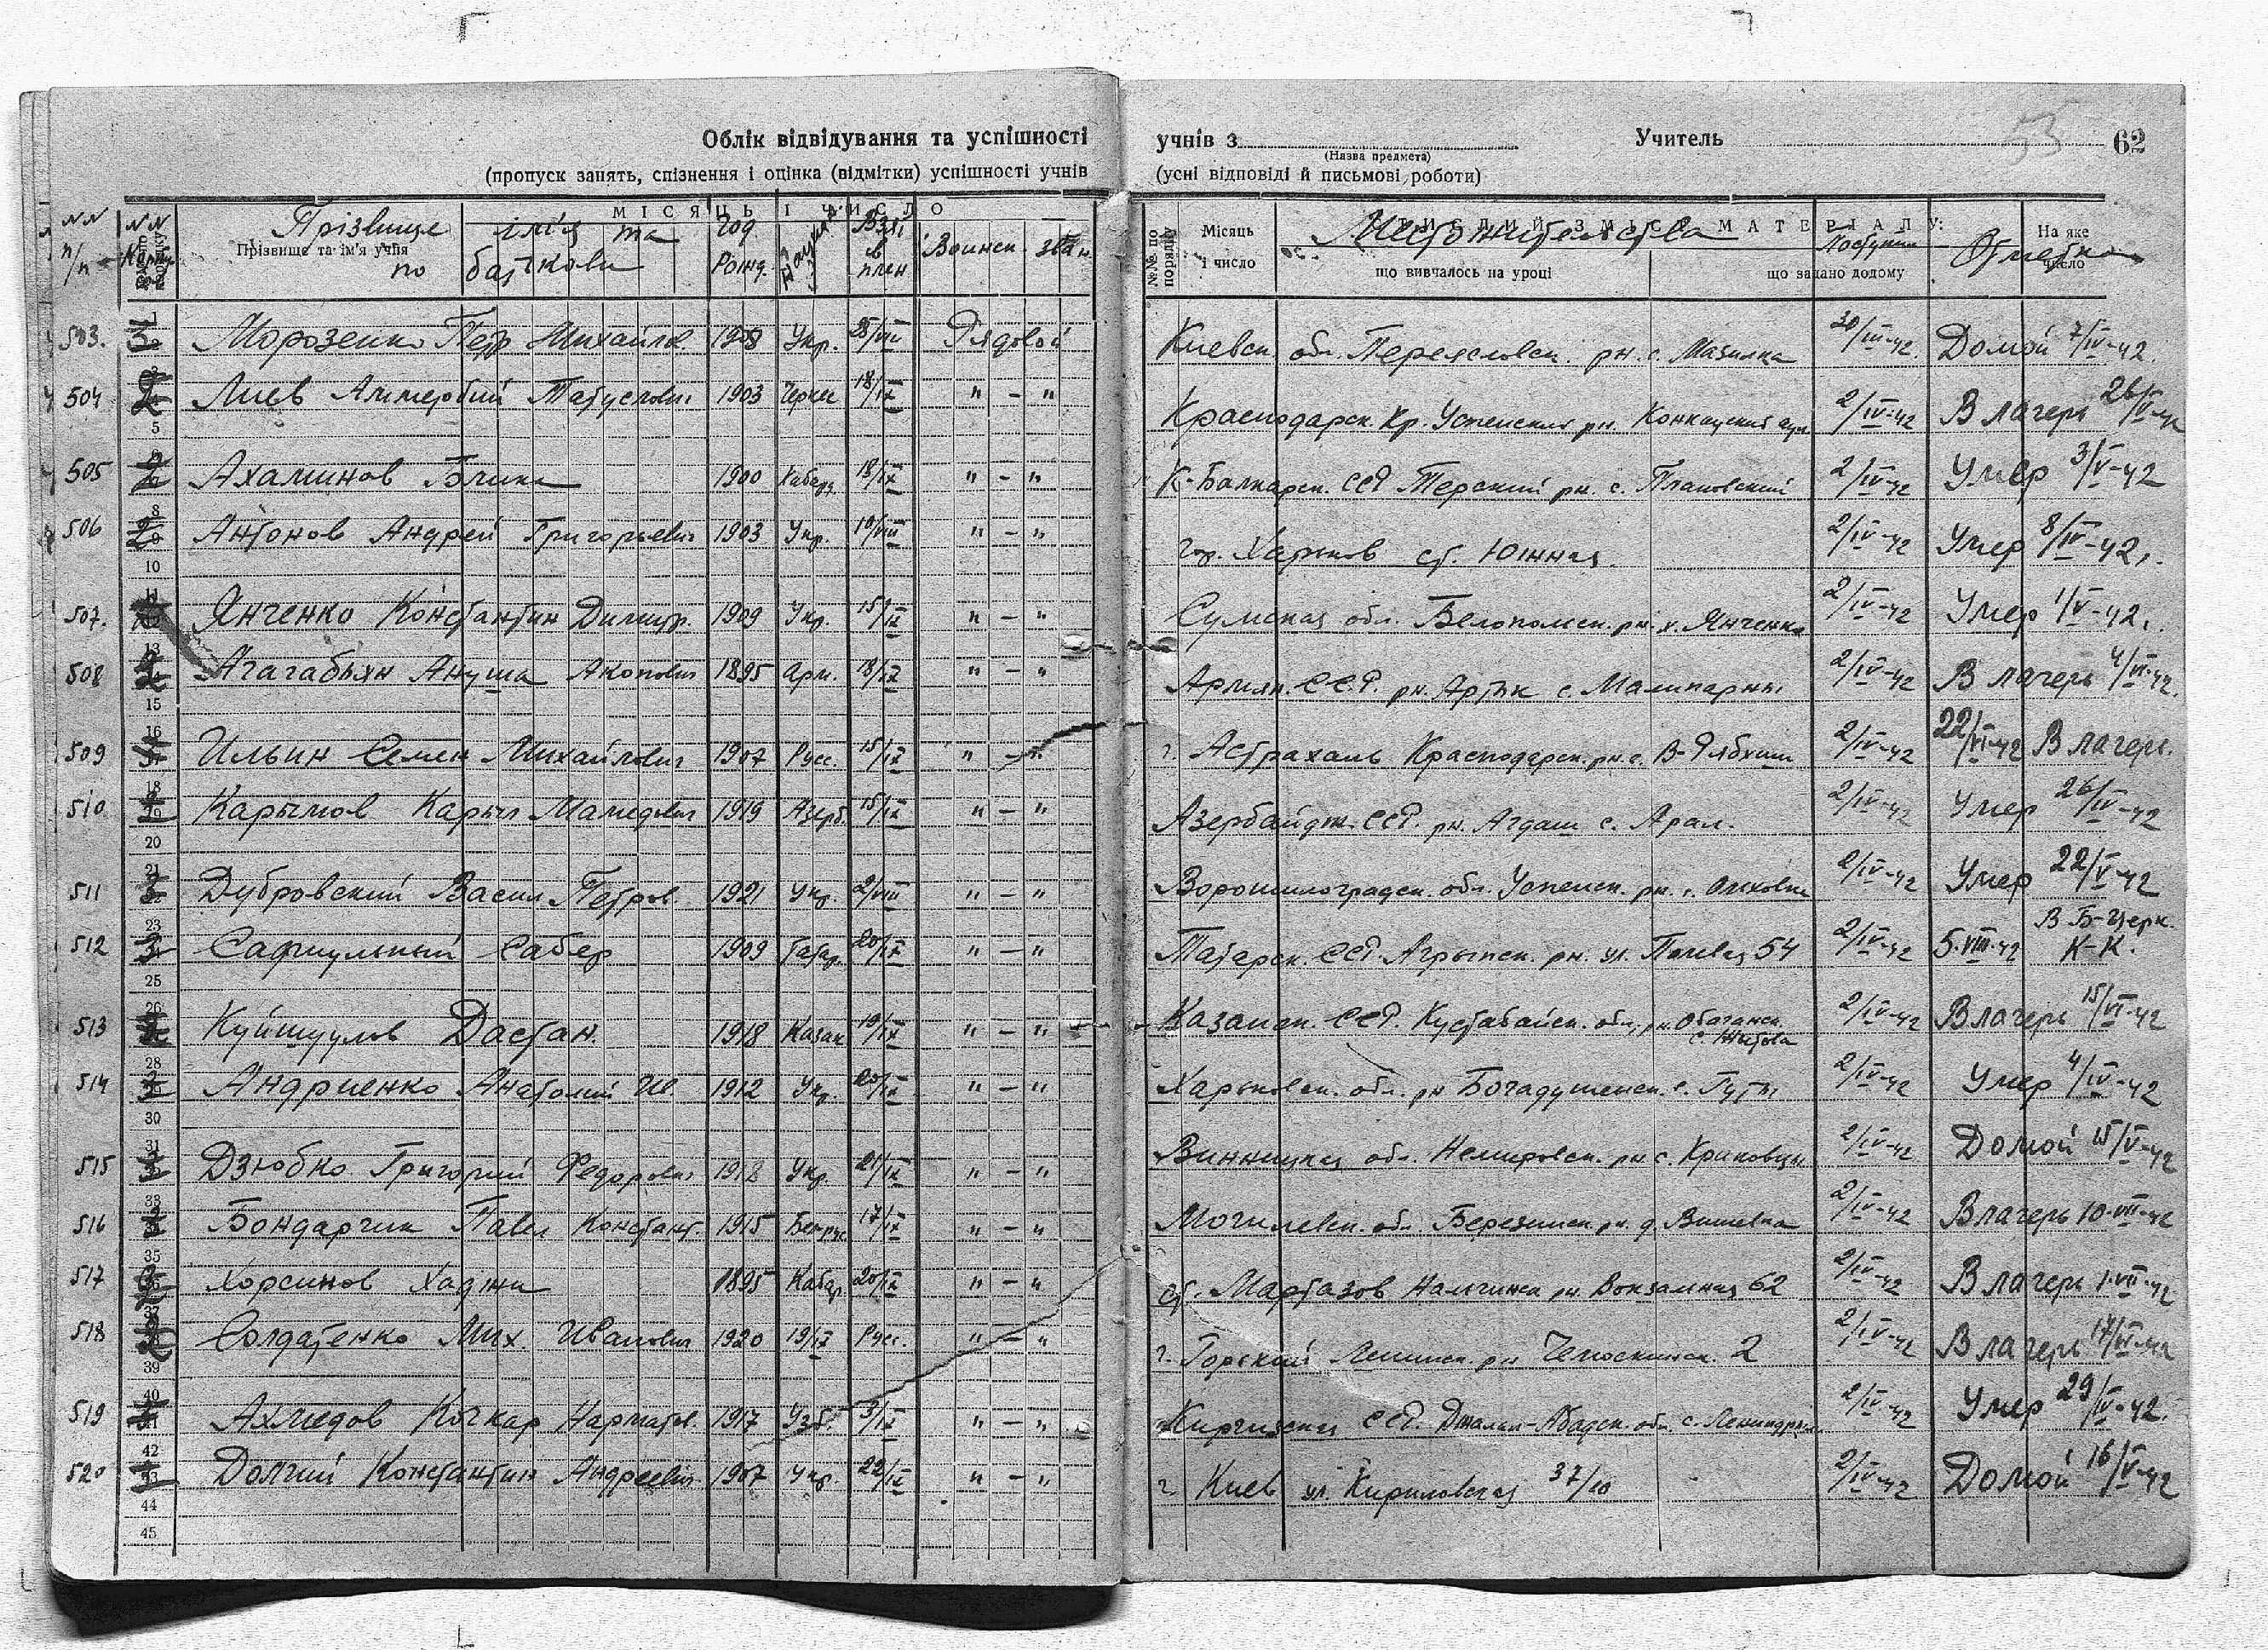 53
Облік відвідування та успішності учнів з Учитель 62
(Назва предмета)
(пропуск занять, спізнення і оцінка (відмітки) успішності учнів (усні відповіді й письмові роботи)
МІСЯЦЬ І ЧИСЛО
NN п/п NN Прізвище ім'я та по батькови Год рожд. Взят в плен Воинск. зван. Местожительства Поступил Отметка
Прізвище та ім'я учня №№ по порядку Місяць і число що вивчалось на уроці що задано додому На яке число
503. 3 Морозенко Петр Михайлов 1908 Укр. 28/VIII Рядовой Киевск. обл. Переясловск. рн. с. Мазинка 30/III-42. Домой 7/IV-42.
504 2 Лиев 1903 Черкес 18/IX " - " Краснодарск. Кр. Успенский рн. 2/IV-42 В лагерь 26/V-42
505 2 Ахаминов 1900 Кабард. 18/IX " - " К-Балкарск. ССР Терский рн. с. Плановский 2/IV-42 Умер 3/V-42
506 2 Антонов Андрей Григорьевич 1903 Укр. 10/VIII " - " гор. Харьков ст. Южная 2/IV-42 Умер 8/IV-42.
507. Янченко Константин Димитр. 1909 Укр. 15/IX " - " Сумская обл. Белополск. рн. х. Янченко 2/IV-42 Умер 1/V-42.
508 2 Агагабьян Ануша Акопович 1895 Арм. 18/IX " - " Армян. ССР. рн. Артик с. 2/IV-42 В лагерь 4/VI-42.
509 Ильин Семен Михайлович 1907 Русс. 15/IX " - " г. Астрахань Краснодарск. рн. с. 2/IV-42 22/VI-42 В лагерь.
510 Карымов Карым Мамедович 1919 Азерб. 15/IX " - " Азербайдж. ССР. рн. Агдаш с. Арал. 2/IV-42 Умер 26/IV-42
511 3 Дубровский Васил Петров. 1921 Укр. 2/VIII " - " Ворошилоградск. обл. Успенск. рн. с. Ольховка 2/IV-42 Умер 22/V-42
512 3 Сабер 1909 Татар. 20/IX " - " Татарск. ССР. Агрызск. рн. ул. Полевая 54 2/IV-42 5.VIII-42 В Б-Церк. К-К.
513 Дастан. 1918 Казак 19/IX " - " Казахск. ССР. Кустабайск. обл, рн. Обаганск. 2/IV-42 В лагерь 15/VI-42
514 Андриенко Анатолий Ив. 1912 Укр. 20/IX " - " Харьковск. обл. рн Богадушенск. с. Гуты 2/IV-42 Умер 4/IV-42
515 Дзюбко Григорий Федорович 1918 Укр. 21/IX " - " Винницкая обл. Немировск. рн с. Криковцы 2/IV-42 Домой 15/V-42
516 Бондарчик Павел Констант. 1915 Белрус. 17/IX " - " Могилевск. обл. Березинск. рн. д. Вишевка 2/IV-42 В лагерь 10.VII-42
517 Хорсинов Хаджи 1895 Кабар 20/IX " - " ст. Мартазов Нальчинск рн Вокзальная 62 2/IV-42 В лагерь 1.VII-42
518 2 Солдатенко Мих. Иванович 1920 19/IX Русс. " - " г. Горький Ленинск. рн Челюскинск. 2 2/IV-42 В лагерь 17/VI-42
519 Ахмедов Кочкар Нарматов. 1917 Узб. 3/IX " - " Киргизская ССР. Джалал-Абадск. обл. 2/IV-42 Умер 29/IV-42.
520 Долгий Константин Андреевич. 1907 Укр. 22/IX " - " г. Киев ул Кириловская 37/10 2/IV-42 Домой 16/V-42